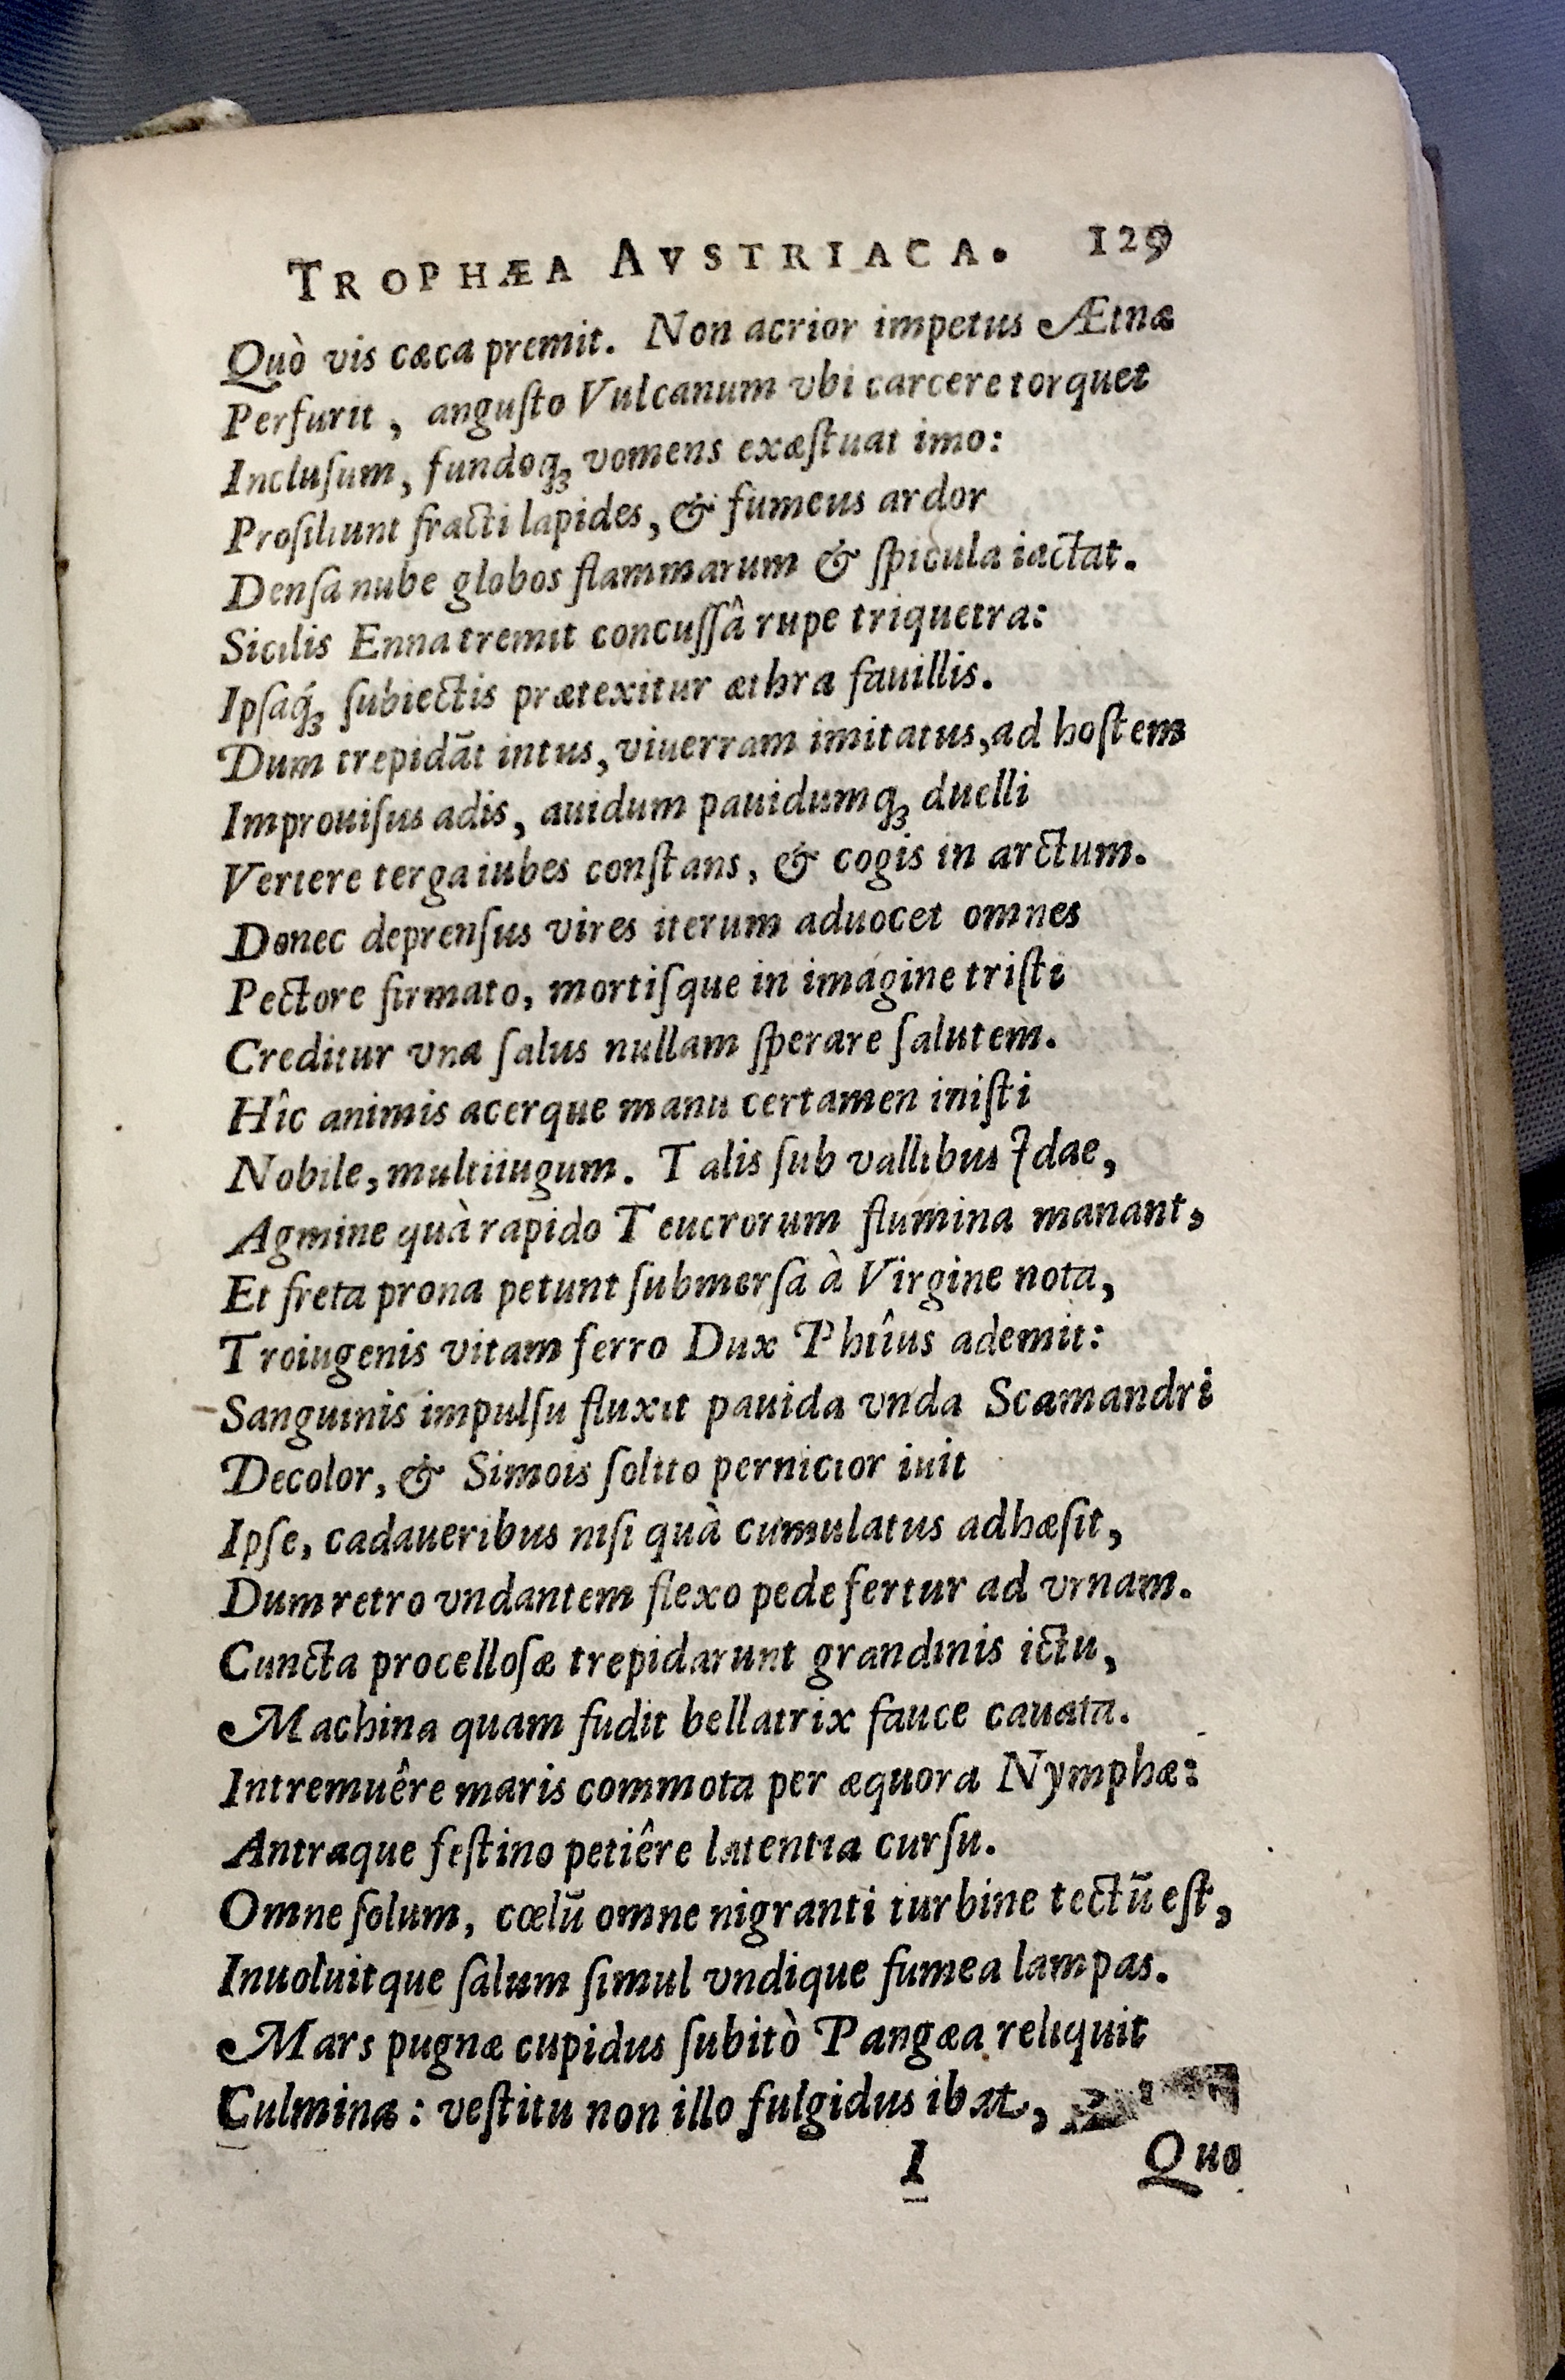 TROPHÆA AVSTRIACA. 129
Quò vis cæca premit. Non acrior impetus Ætnæ
Perfurit, anguſto Vulcanum vbi carcere torquet
Incluſum, fundoq; vomens exæſtuat imo:
Proſiliunt fracti lapides, & fumeus ardor
Denſa nube globos flammarum & ſpicula iactat.
Sicilis Enna tremit concuſſâ rupe triquetra:
Ipſaq́; ſubiectis prætexitur æthra fauillis.
Dum trepidāt intus, viuerram imitatus, ad hoſtem
Improuiſus adis, auidum pauidumq; duelli
Vertere terga iubes conſtans, & cogis in arctum.
Donec deprenſus vires iterum aduocet omnes
Pectore firmato, mortiſque in imagine triſti
Creditur vna ſalus nullam ſperare ſalutem.
Hîc animis acerque manu certamen iniſti
Nobile, multiiugum. Talis ſub vallibus Idae,
Agmine quà rapido Teucrorum flumina manant,
Et freta prona petunt ſubmerſa à Virgine nota,
Troiugenis vitam ferro Dux Phtîus ademit:
Sanguinis impulſu fluxit pauida vnda Scamandri
Decolor, & Simois ſolito pernicior iuit
Ipſe, cadaueribus niſi quà cumulatus adhæſit,
Dum retro vndantem flexo pede fertur ad vrnam.
Cuncta procelloſæ trepidarunt grandinis ictu,
Machina quam fudit bellatrix fauce cauata.
Intremuêre maris commota per æquora Nymphæ:
Antraque feſtino petiêre latentia curſu.
Omne ſolum, cœlū omne nigranti turbine tectū eſt,
Inuoluitque ſalum ſimul vndique fumea lampas.
Mars pugnæ cupidus ſubitò Pangæa reliquit
Culmina: veſtitu non illo fulgidus ibat,
I Quo